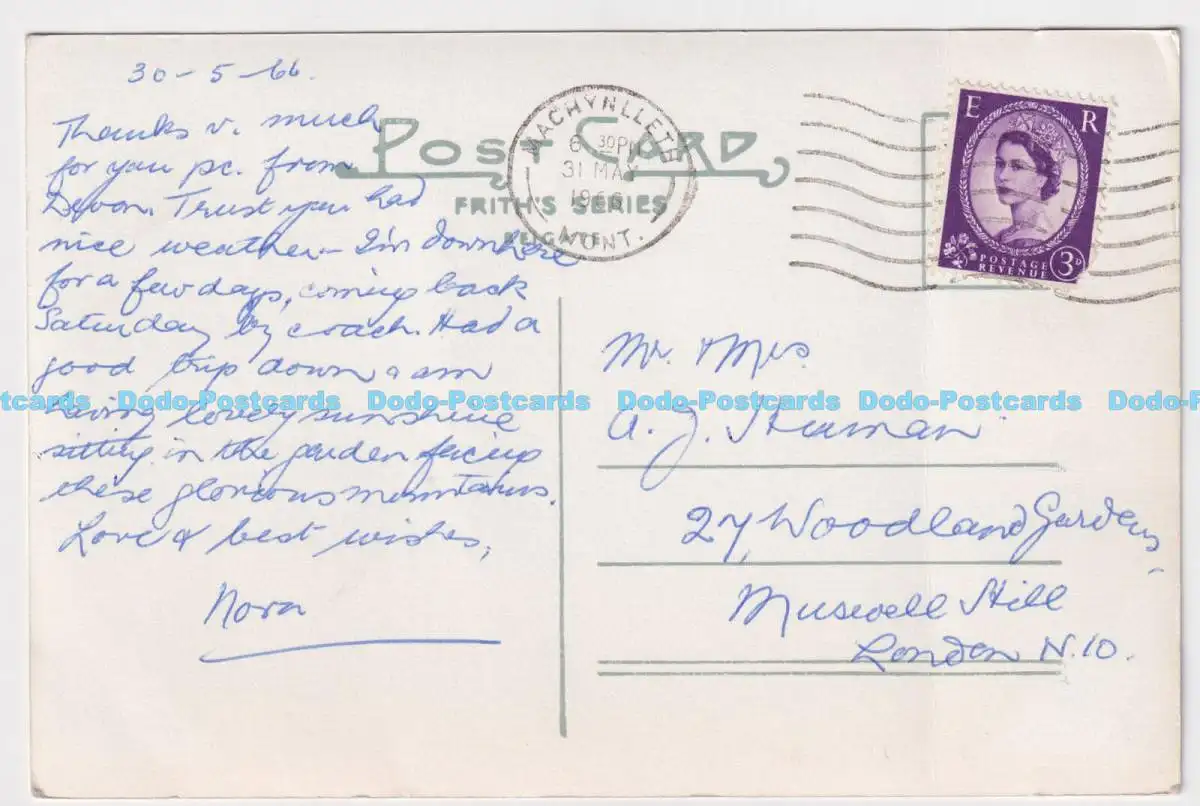 30-5-66.
Thanks v. much
for you pc. from
Devon. Trust you had
nice weather - I'm down here
for a few days, coming back
Saturday by coach. Had a
good trip down & am
having lovely sunshine
sitting in the garden facing
these glorious mountains.
Love & best wishes,
Nora
POST CARD
FRITH'S SERIES
REIGATE
MACHYNLLETH
6 30PM
31 MAY
1966
MONT.
E R
POSTAGE
REVENUE
3D
Mr. & Mrs
A. J.
27, Woodland Gardens,
Muswell Hill
London N.10.
Dodo-Postcards Dodo-Postcards Dodo-Postcards Dodo-Postcards